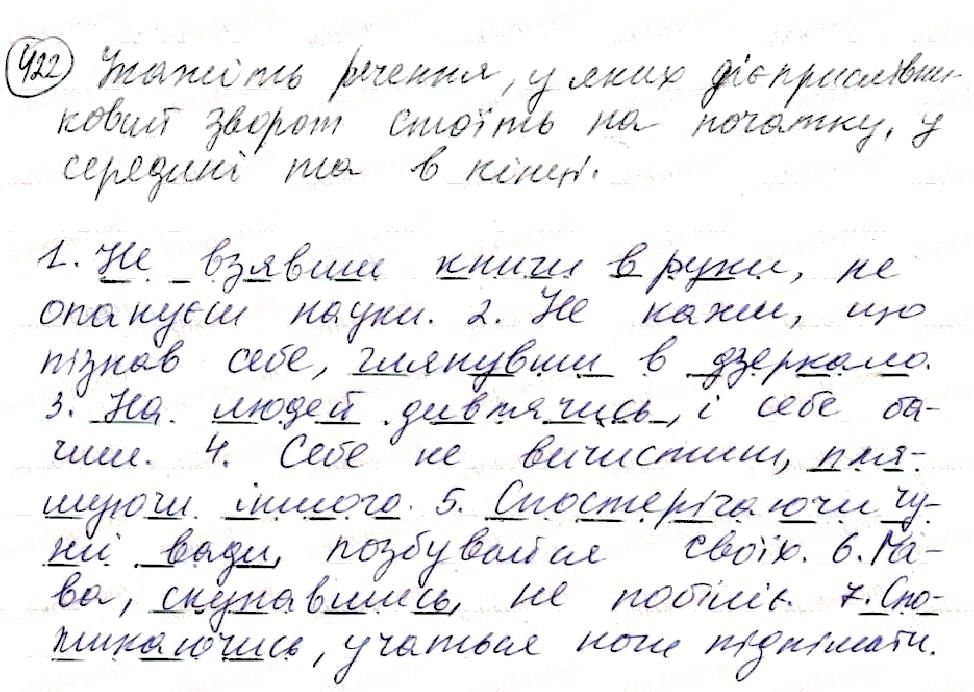 422 Укажіть речення, у яких дієприслівни-
ковий зворот стоїть на початку, у
середині та в кінці.
1. Не взявши книги в руки, не
опануєш науки. 2. Не кажи, що
пізнав себе, глянувши в дзеркало.
3. На людей дивлячись, і себе ба-
чиш. 4. Себе не вичистиш, пля-
муючи іншого. 5. Спостерігаючи чу-
жі вади, позбувайся своїх. 6. Ґа-
ва, скупавшись, не побіліє. 7. Спо-
тикаючись, учаться ноги піднімати.